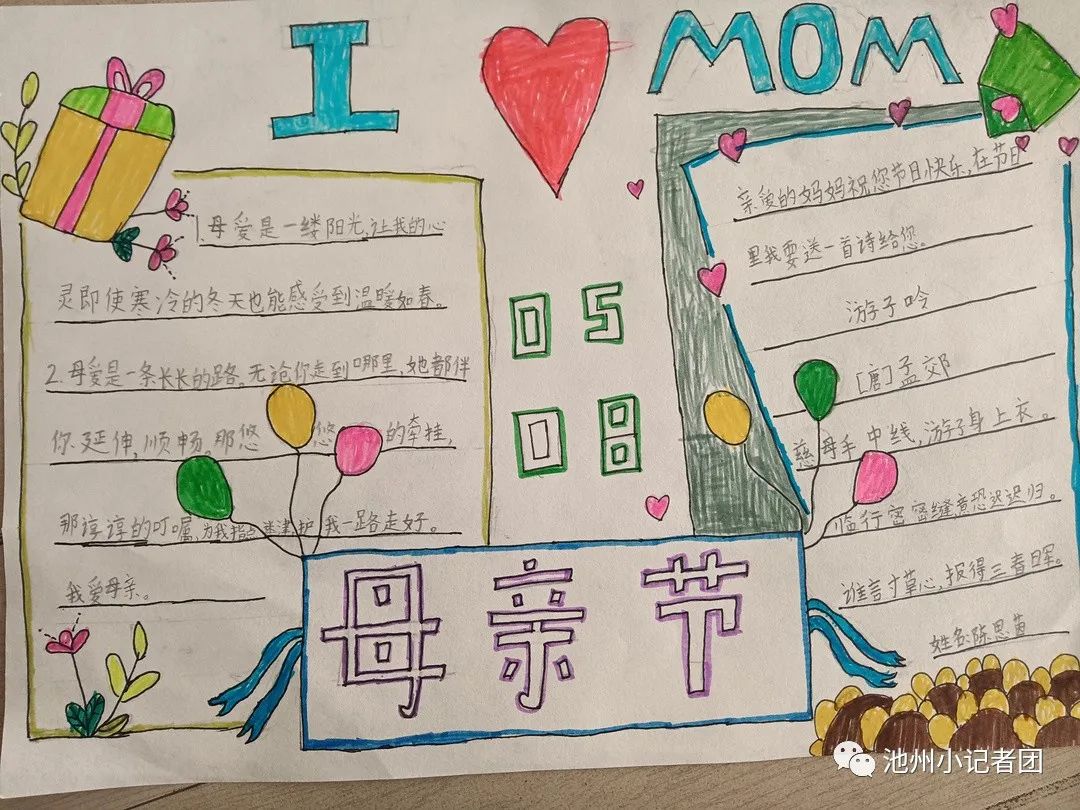 I MOM
1.母爱是一缕阳光,让我的心
灵即使寒冷的冬天也能感受到温暖如春。
2.母爱是一条长长的路。无论你走到哪里,她都伴
你.延伸,顺畅。那悠悠的牵挂,
那谆谆的叮嘱,为我指点迷津,护我一路走好。
我爱母亲。
05
08
亲爱的妈妈祝您节日快乐,在节日
里我要送一首诗给您。
游子吟
[唐]孟郊
慈母手中线,游子身上衣。
临行密密缝意恐迟迟归。
谁言寸草心,报得三春晖。
姓名:陈思
母亲节
池州小记者团